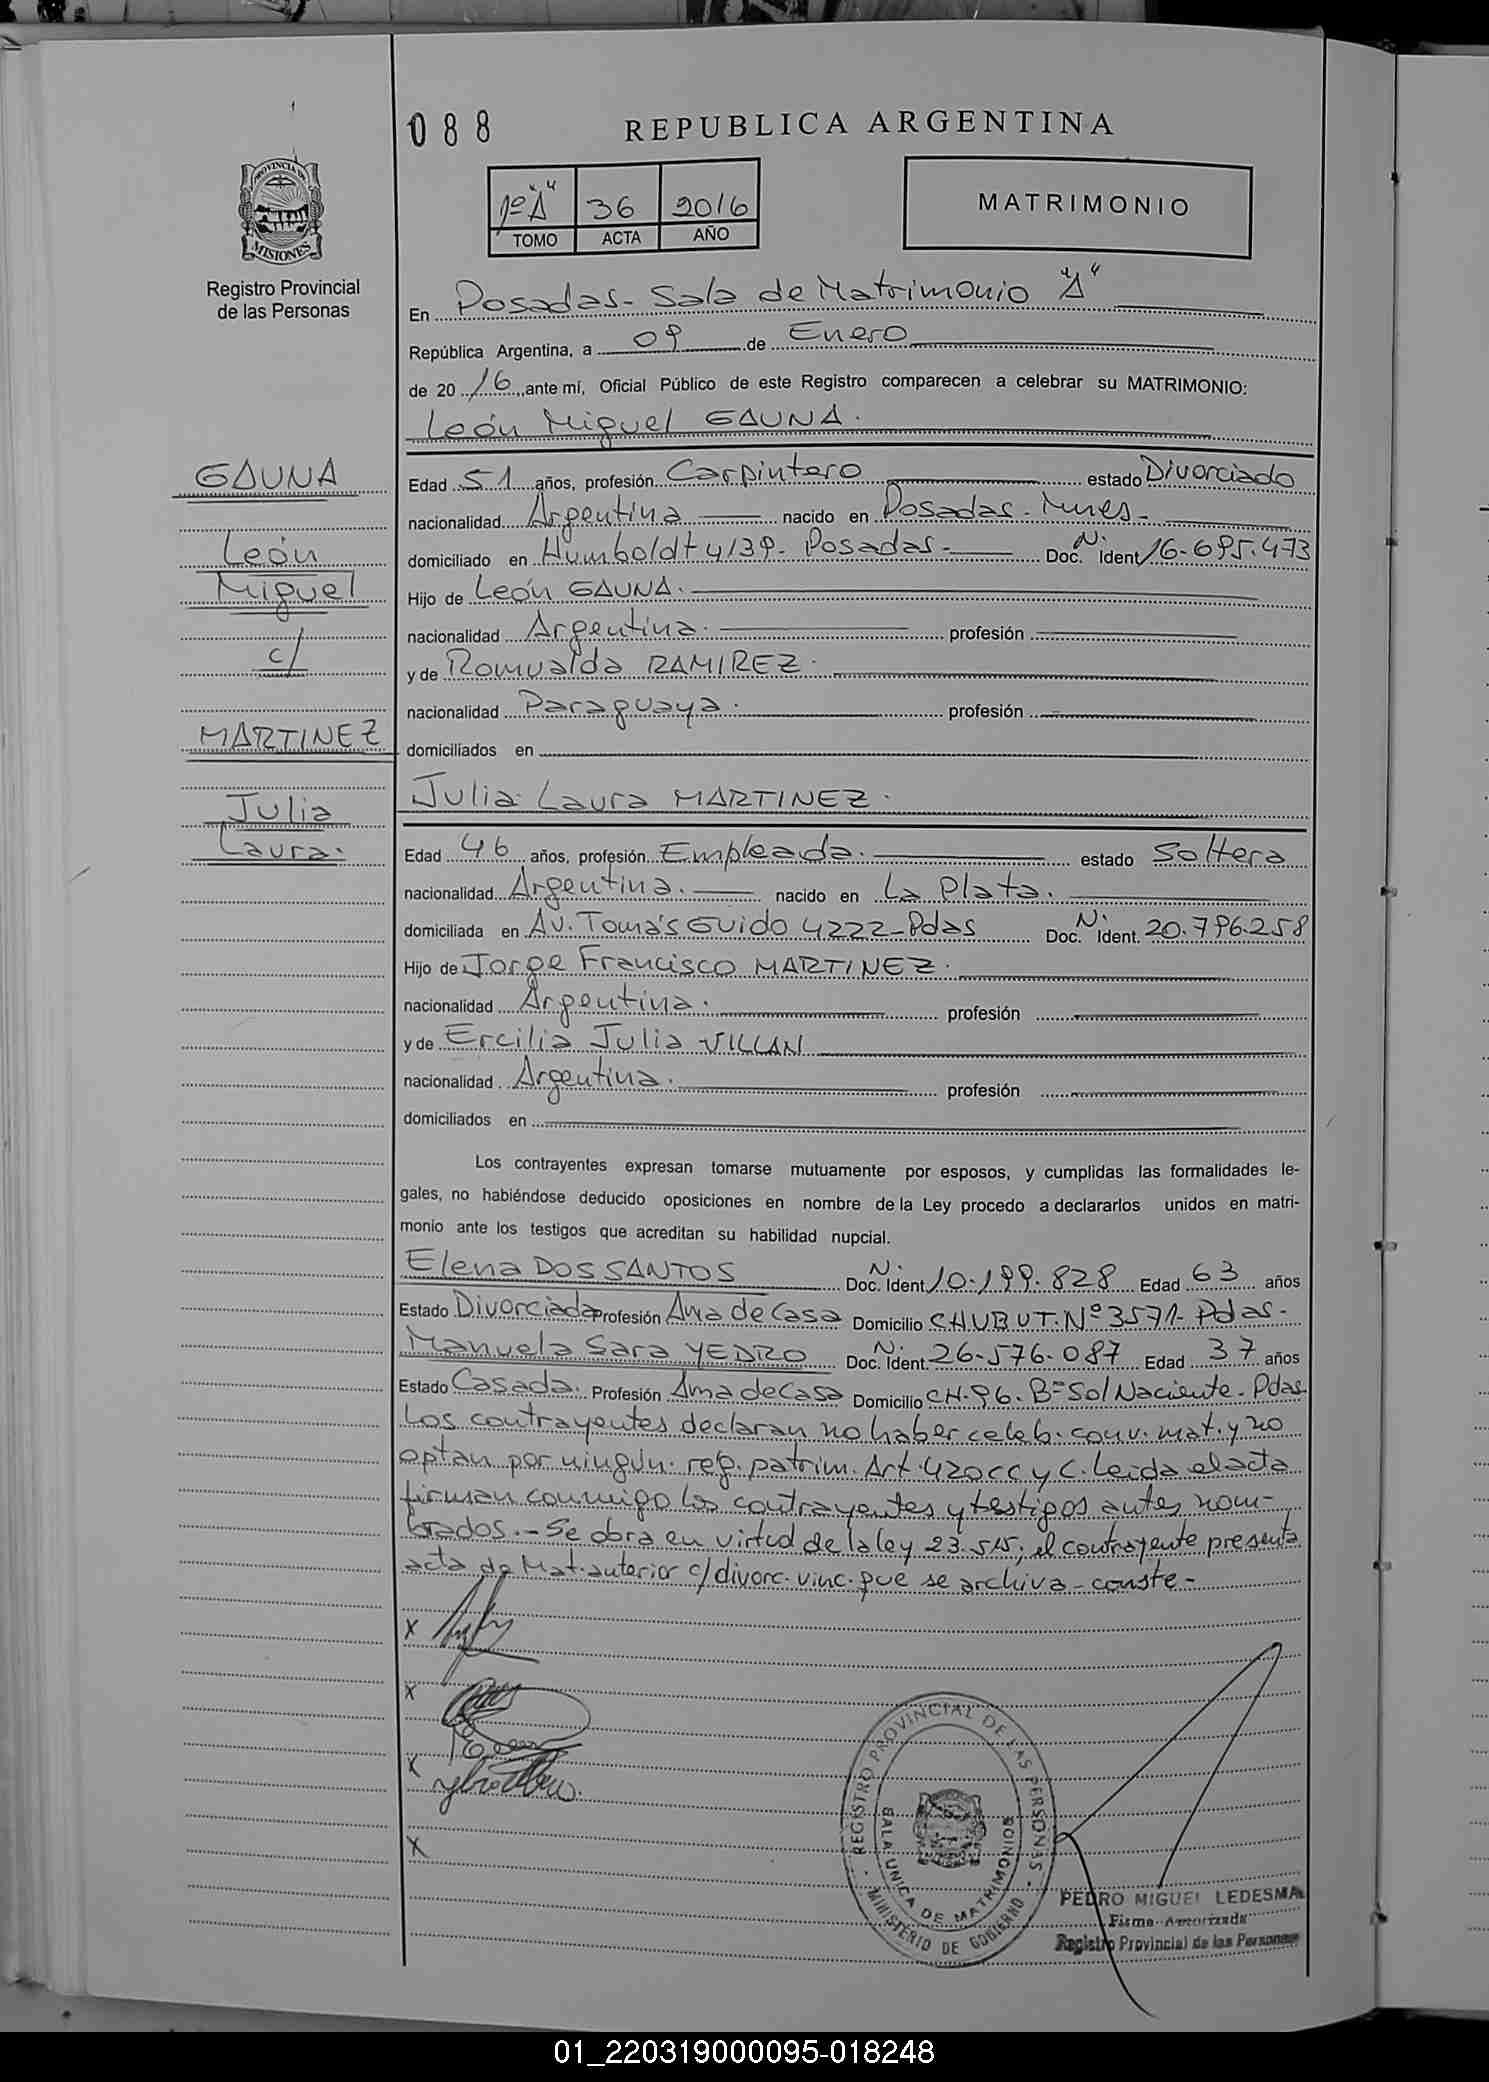 088
REPUBLICA ARGENTINA
PROVINCIA DE
MISIONES
Registro Provincial
de las Personas
1º "A" 36 2016
TOMO ACTA AÑO
MATRIMONIO
En Posadas - Sala de Matrimonio "A"
República Argentina, a 09 de Enero
de 20 16, ante mí, Oficial Público de este Registro comparecen a celebrar su MATRIMONIO:
León Miguel GAUNA.
GAUNA
León
Miguel
c/
MARTINEZ
Julia
Laura.
Edad 51 años, profesión Carpintero estado Divorciado
nacionalidad Argentina nacido en Posadas - Mnes -
domiciliado en Humboldt 4139 - Posadas - Doc. N. ident 16-695.473
Hijo de León GAUNA.
nacionalidad Argentina. profesión
y de Romualda RAMIREZ.
nacionalidad Paraguaya. profesión
domiciliados en
Julia Laura MARTINEZ.
Edad 46 años, profesión Empleada. estado Soltera
nacionalidad Argentina. nacido en La Plata.
domiciliada en Av. Tomás Guido 4222 - Pdas Doc. N. ident. 20.796.258
Hijo de Jorge Francisco MARTINEZ.
nacionalidad Argentina. profesión
y de Ercilia Julia VILLAN
nacionalidad Argentina. profesión
domiciliados en
Los contrayentes expresan tomarse mutuamente por esposos, y cumplidas las formalidades le-
gales, no habiéndose deducido oposiciones en nombre de la Ley procedo a declararlos unidos en matri-
monio ante los testigos que acreditan su habilidad nupcial.
Elena DOS SANTOS Doc. N. Ident. 10.199.828 Edad 63 años
Estado Divorciada Profesión Ama de Casa Domicilio CHUBUT. Nº 3571 - Pdas -
Manuela Sara YEDRO Doc. N. Ident. 26-576-087 Edad 37 años
Estado Casada. Profesión Ama de Casa Domicilio CH. 96. Bº Sol Naciente - Pdas
Los contrayentes declaran no haber celeb. conv. mat. y no
optan por ningún. reg. patrim. Art. 420 CC y C. Leída el acta
firman conmigo los contrayentes y testigos antes nom-
brados. - Se obra en virtud de la ley 23.515; el contrayente presenta
acta de Mat. anterior c/ divorc. vinc. que se archiva - conste -
X
X
X
X
REGISTRO PROVINCIAL DE LAS PERSONAS
SALA UNICA DE MATRIMONIOS
MINISTERIO DE GOBIERNO
PEDRO MIGUEL LEDESMA
Firma Autorizada
Registro Provincial de las Personas
01_220319000095-018248